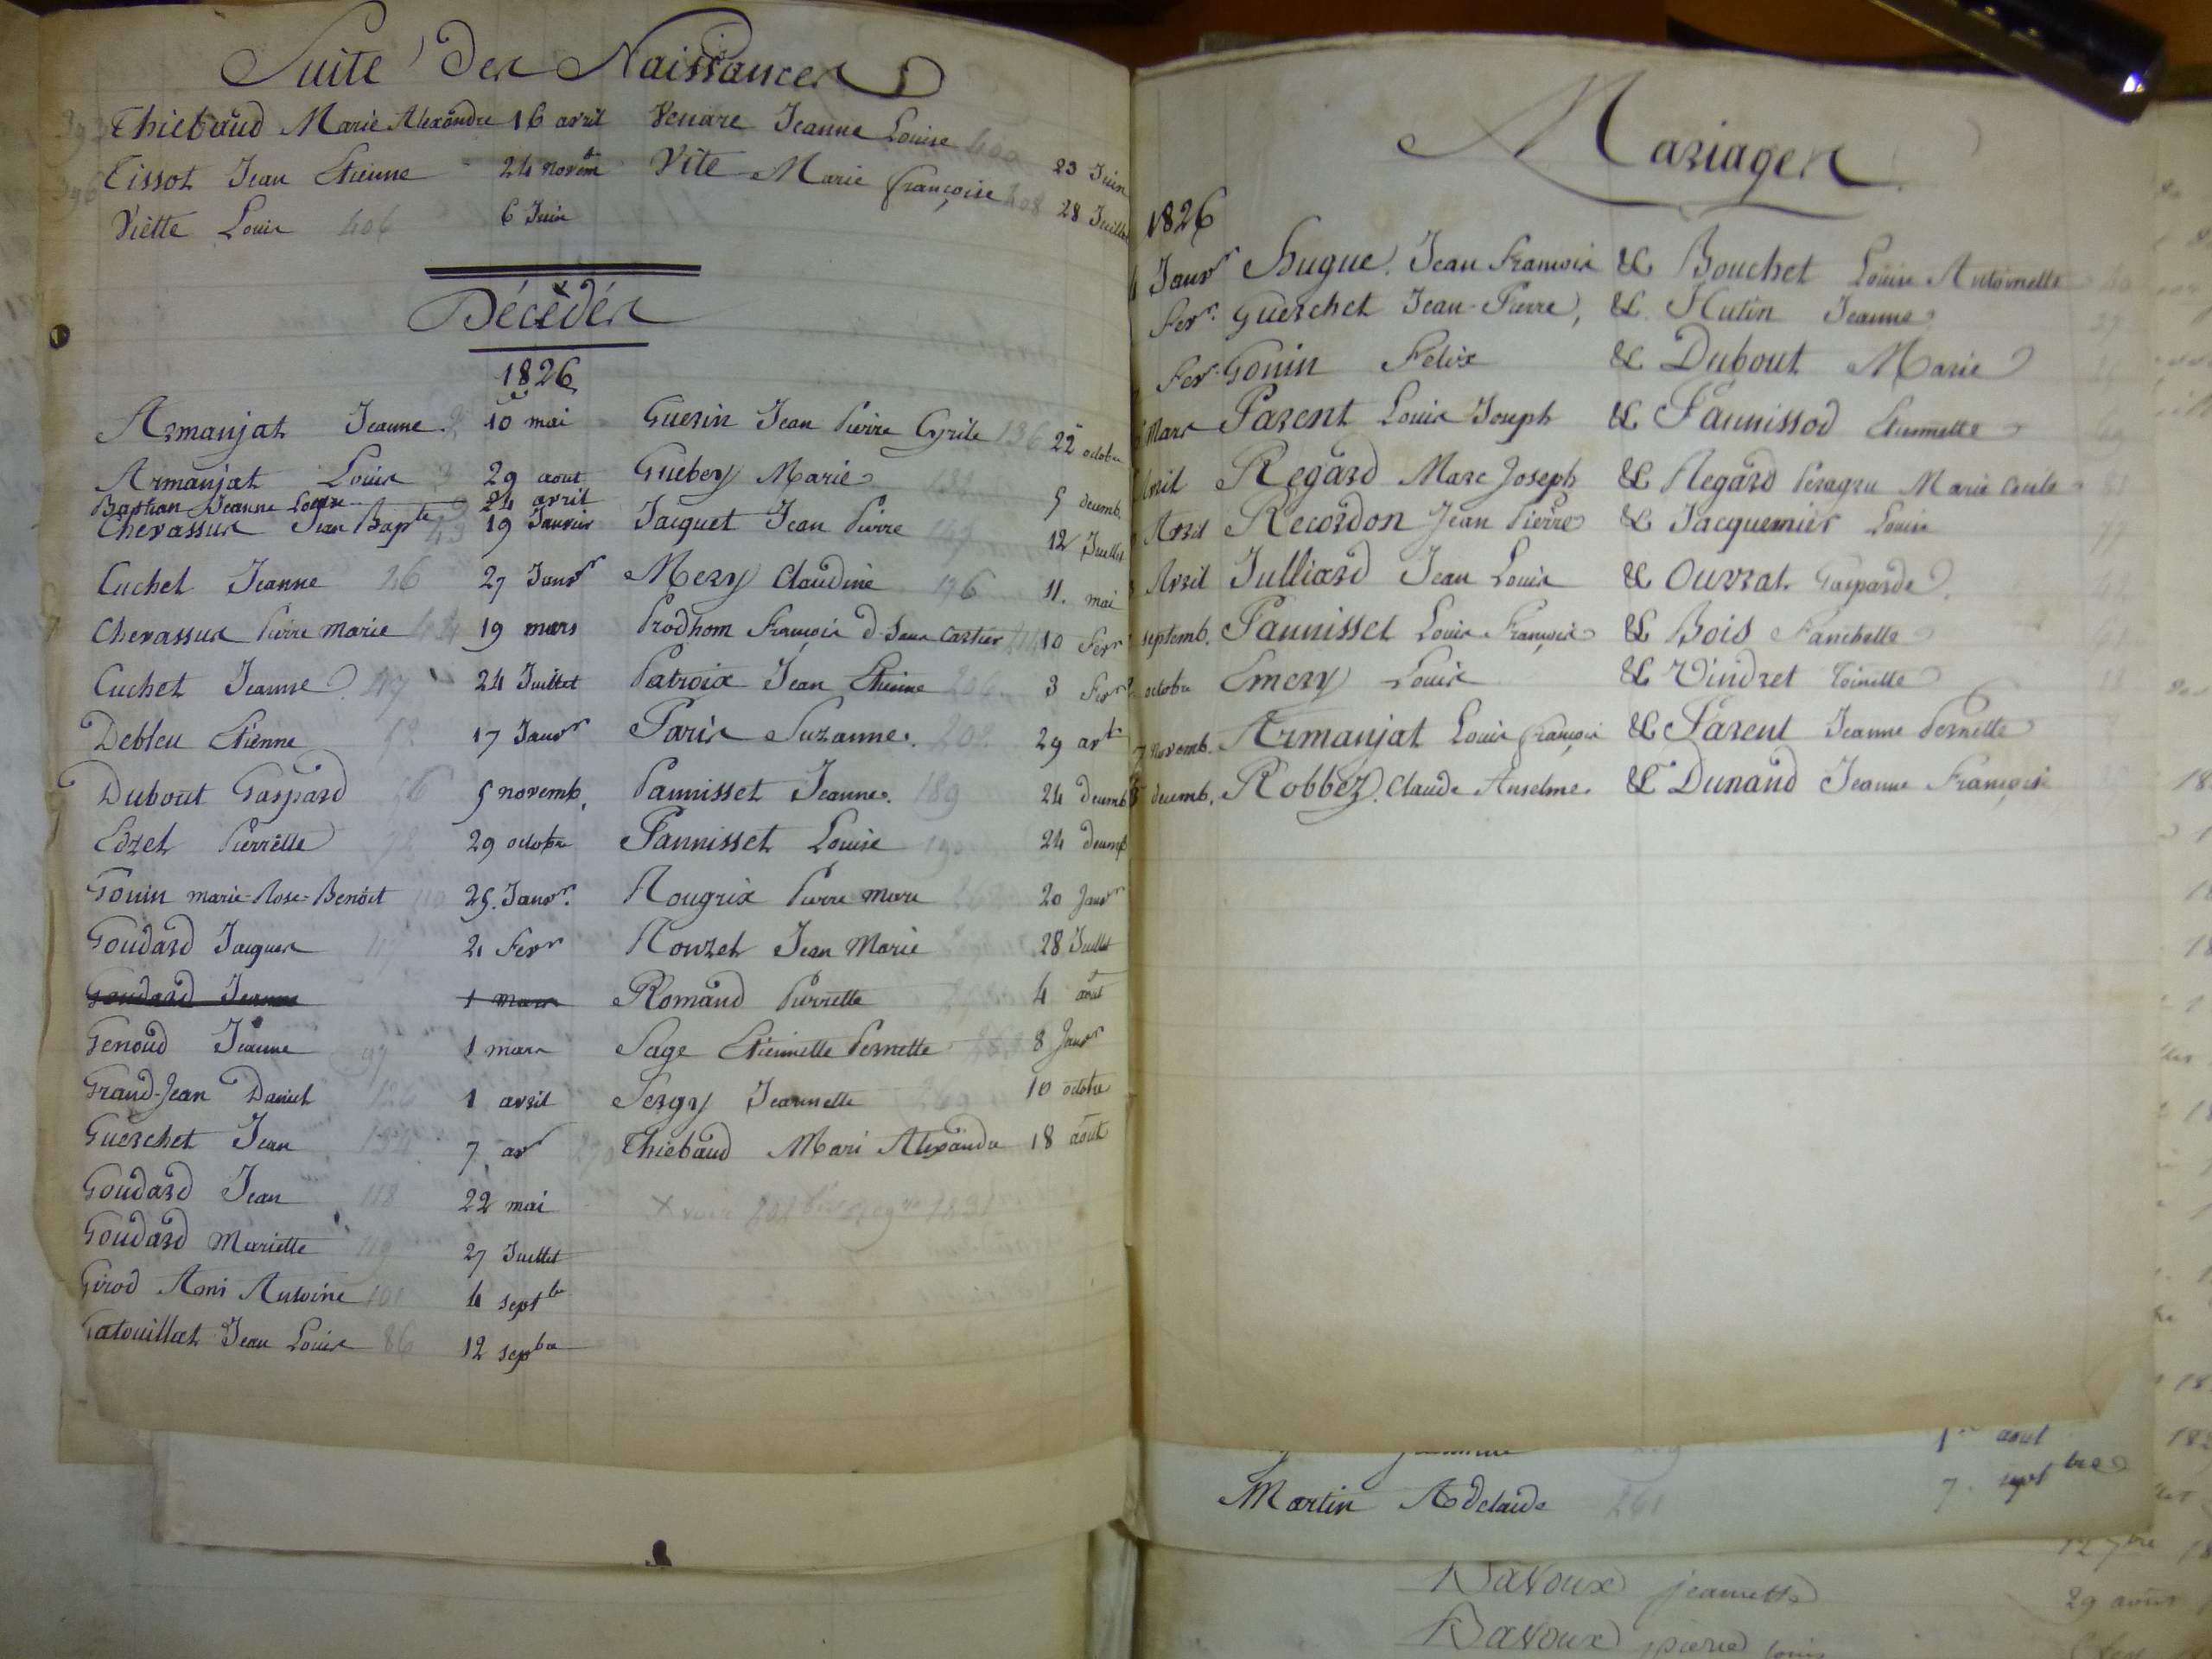 Suite des Naissances
Thiebaud Marie Alexandre 16 avril
Tissot Jean Etienne 24 novem
Viette Louis 406 6 Juin
Venare Jeanne Louise 400 23 Juin
Vite Marie françoise 408 28 Juillet
Décèdés
1826
Armanjat Jeanne 10 mai
Armanjat Louis 29 aout
Bastian Jeanne Louise 24 avril
Chevassus Jean Bapte 19 Janvier
Cuchet Jeanne 46 27 Janvr
Chevassus Pierre Marie 19 mars
Cuchet Jeanne 47 24 Juillet
Debleu Etienne 17 Janvr
Dubout Gaspard 5 novemb,
Edzet Pierrette 29 octobre
Gouin marie-Rose-Benoit 110 25. Janvr.
Goudard Jacques 21 Fevr
Goudard Jeanne 1 mars
Genoud Jeanne 97 1 mars
Grand-Jean Daniel 126 1 avril
Guerchet Jean 134 7 avr
Goudard Jean 118 22 mai
Goudard Mariette 119 27 Juillet
Girod Ami Antoine 101 4 septbre
Gatouillat Jean Louis 86 12 sepbre
Guerin Jean Pierre Cyrile 136 22 octobre
Guebey Marie 5 decemb.
Jacquet Jean Pierre 12 Juillet
Mery Claudine 176 11. mai
Prodhom François d. Jean Cartier 10 Fevr
Patroix Jean Etienne 3 Fevr
Paris Suzanne. 202 29 avr
Pannisset Jeanne. 189 24 decemb
Pannisset Louise 190 24 decemb
Rougrix Pierre marie 20 Janvr
Rouzet Jean Marie 28 Juillet
Romand Pierrette 4 aout
Sage Etiennette Pernette 8 Janvr
Sergy Jeannette 269 10 octobre
270 Thiebaud Mari Alexandre 18 août
Mariages
1826
Janvr Hugue. Jean François & Bouchet Louise Antoinette
Fevr. Guerchet Jean-Pierre, & Hutin Jeanne
Fevr Gouin Felix & Dubout Marie
Mars Parent Louis Joseph & Pannissod Etiennette
Avril Regard Marc Joseph & Regard Marie
Avril Recordon Jean Pierre & Jacquemier Louise
Avril Julliard Jean Louis & Ouvrat Gasparde
septemb. Pannisset Louis François & Bois Fanchette
octobre Emery Louis & Vindret Toinette
7 novemb. Armanjat Louis françois & Parent Jeanne Pernette
decemb. Robbez. Claude Anselme & Dunand Jeanne Françoise
1er aout
Martin Adelaide 261 7 septbre
Davoux jeannette 29 aout
Davoux pierre louis